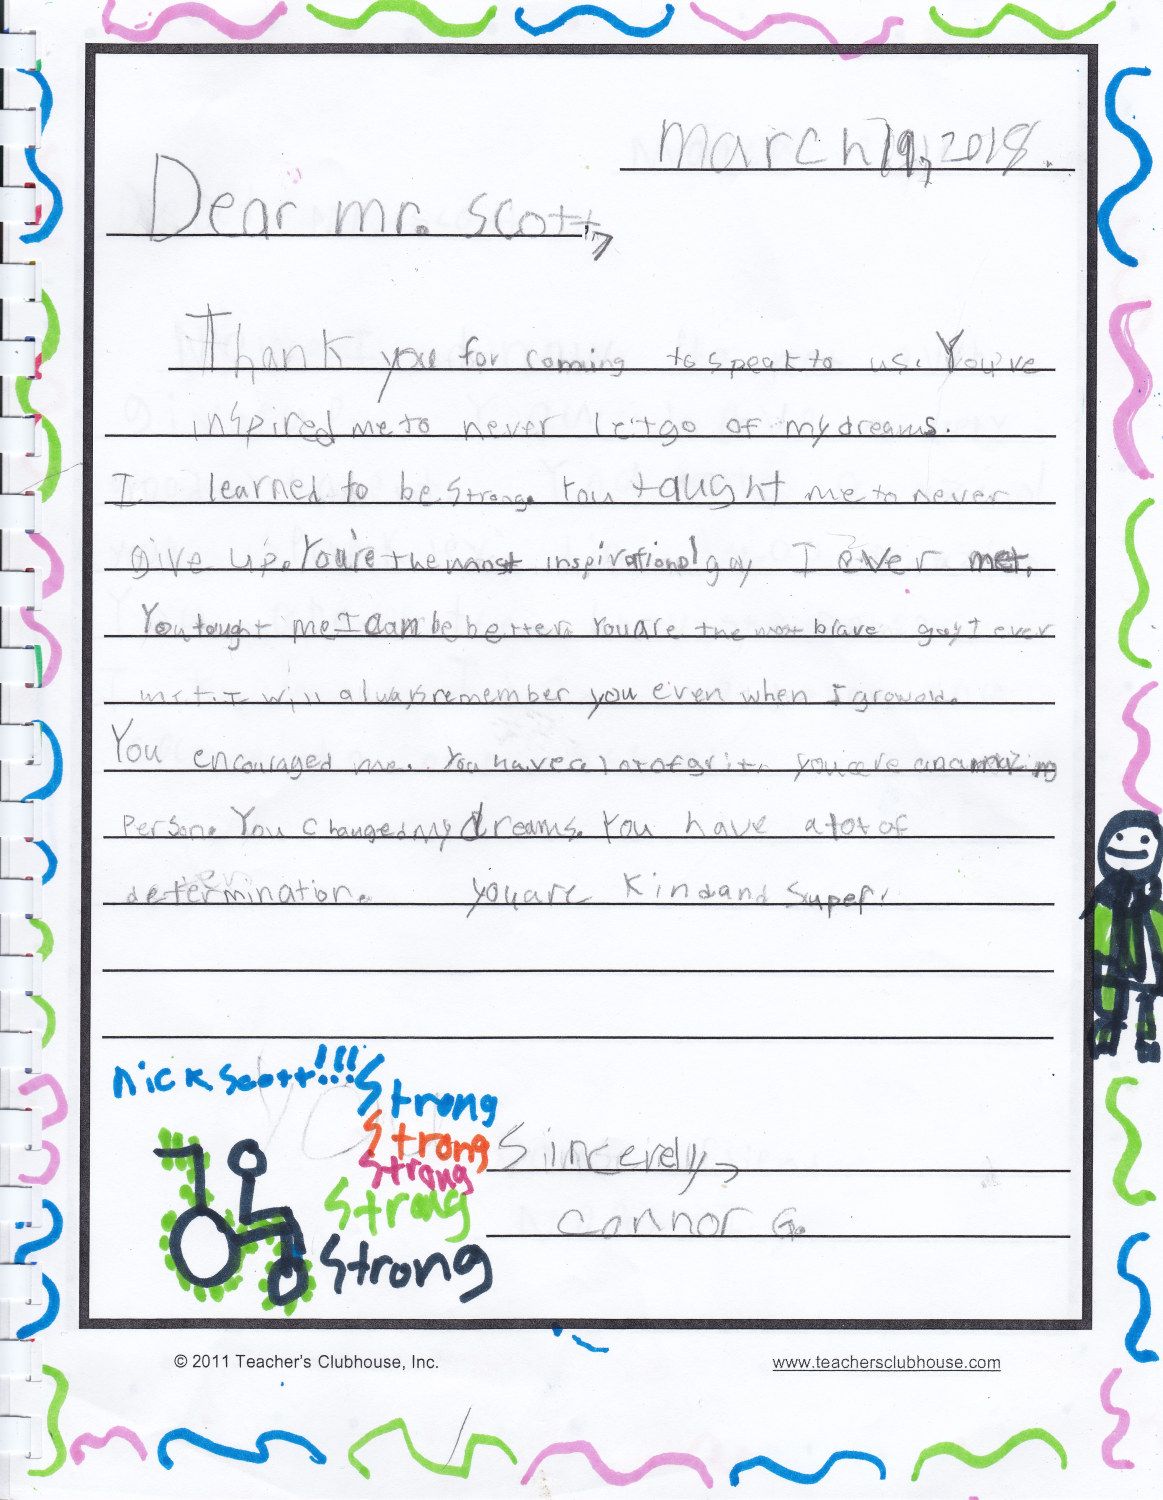 March 19, 2018.
Dear mr. scott,
Thank you for coming to speak to us. You've
inspired me to never let go of my dreams.
I learned to be strong. You taught me to never
give up. You're the most inspirational guy I ever met.
You taught me I can be better. You are the most brave guy I ever
met. I will always remember you even when I grow old.
You encouraged me. You have a lot of grit. you are an amazing
Person. You changed my dreams. You have a lot of
determination. you are Kind and super.
nick scott!!!
Strong
Strong
Strong
Strong
Strong
Sincerely,
Connor G.
© 2011 Teacher's Clubhouse, Inc.
www.teachersclubhouse.com